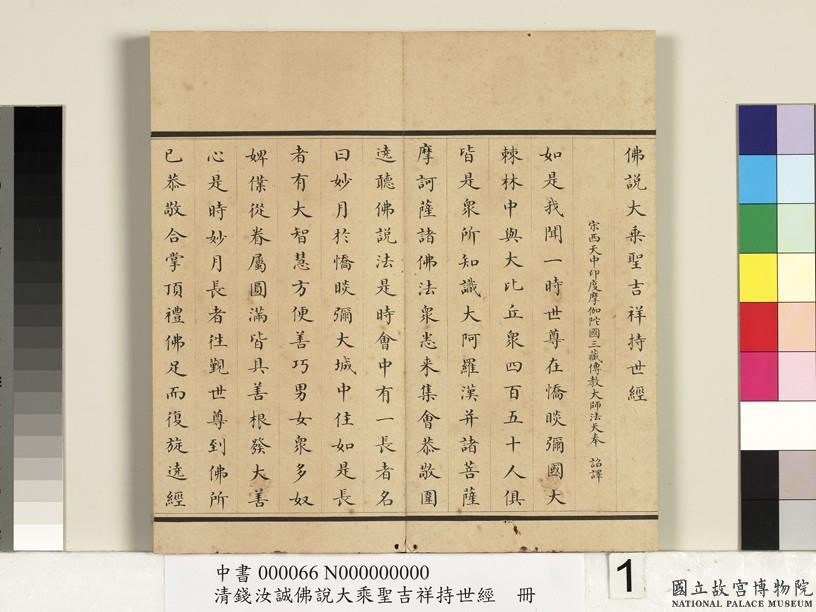 佛說大乘聖吉祥持世經
宋西天中印度摩伽陀國三藏傳教大師法天奉 詔譯
如是我聞一時世尊在憍睒彌國大
棘林中與大比丘眾四百五十人俱
皆是眾所知識大阿羅漢并諸菩薩
摩訶薩諸佛法眾悉来集會恭敬圍
遶聽佛說法是時會中有一長者名
曰妙月於憍睒彌大城中住如是長
者有大智慧方便善巧男女眾多奴
婢僕從眷屬圓滿皆具善根發大善
心是時妙月長者徃觐世尊到佛所
已恭敬合掌頂禮佛足而復旋遶經
中書 000066 N000000000
清錢汝誠佛說大乘聖吉祥持世經 冊
1
國立故宮博物院
NATIONAL PALACE MUSEUM